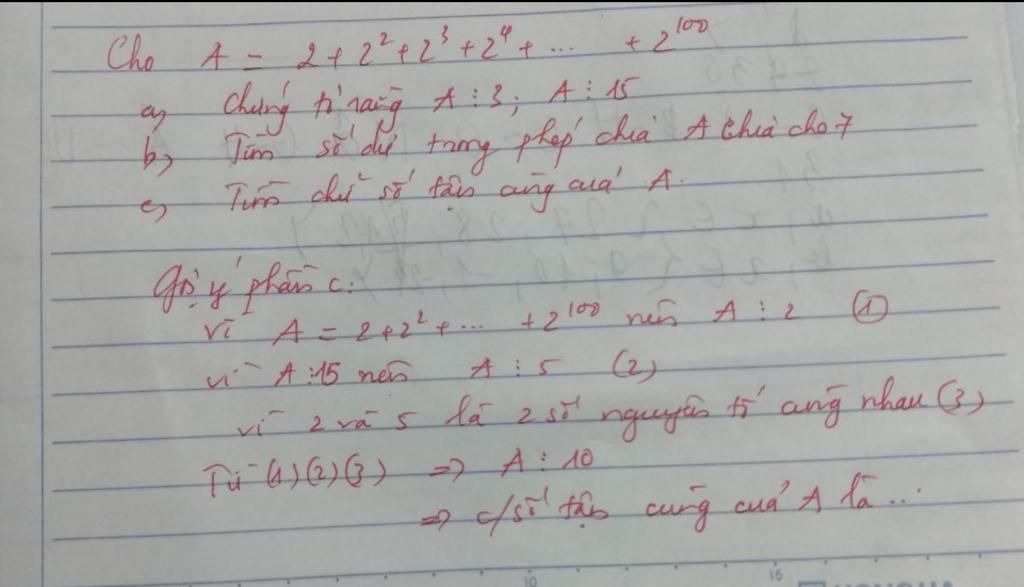 Cho A = 2 + 2² + 2³ + 2⁴ + ... + 2¹⁰⁰
a, Chứng tỏ rằng A ⋮ 3; A ⋮ 15
b, Tìm số dư trong phép chia A chia cho 7
c, Tìm chữ số tận cùng của A.
Gợi ý phần c:
Vì A = 2 + 2² + ... + 2¹⁰⁰ nên A ⋮ 2 (1)
Vì A ⋮ 15 nên A ⋮ 5 (2)
Vì 2 và 5 là 2 số nguyên tố cùng nhau (3)
Từ (1) (2) (3) => A ⋮ 10
=> c/số tận cùng của A là ...
10 15